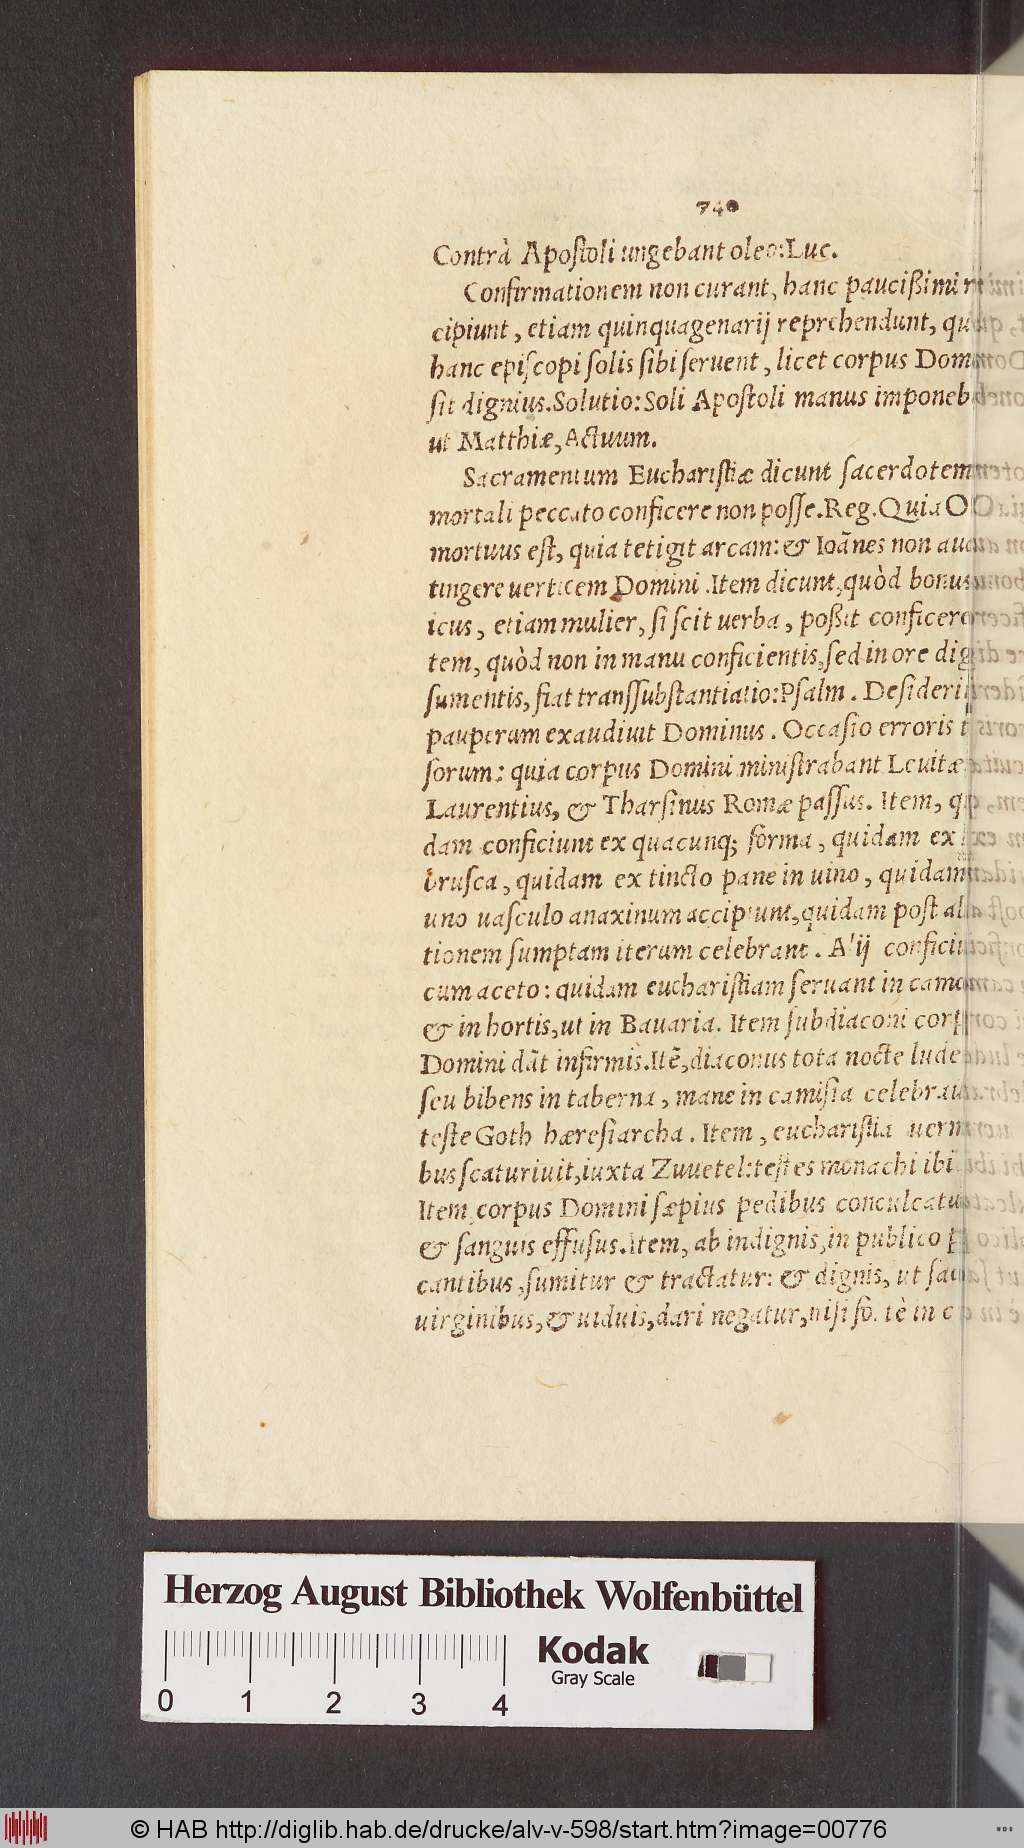 740
Contrà Apostoli ungebant oleo: Luc.
Confirmationem non curant, hanc paucißimi
cipiunt, etiam quinquagenarij reprehendunt,
hanc episcopi solis sibi seruent, licet corpus Dom
sit dignius. Solutio: Soli Apostoli manus imponeb
ut Matthiæ, Actuum.
Sacramentum Eucharistiæ dicunt sacerdotem
mortali peccato conficere non posse. Reg. Quia O
mortuus est, quia tetigit arcam: & Ioãnes non aud
tingere uerticem Domini. Item dicunt, quòd bonus
icus, etiam mulier, si scit uerba, poßit conficere
tem, quòd non in manu conficientis, sed in ore dig
sumentis, fiat transsubstantiatio: Psalm. Desideri
pauperum exaudiuit Dominus. Occasio erroris
sorum: quia corpus Domini ministrabant Leuitæ
Laurentius, & Tharsinus Romæ passus. Item,
dam conficiunt ex quacunq; forma, quidam ex
brusca, quidam ex tincto pane in uino, quidam
uno uasculo anaxinum accipiunt, quidam post
tionem sumptam iterum celebrant. A'ij confici
cum aceto: quidam eucharistiam seruant in
& in hortis, ut in Bauaria. Item subdiaconi
Domini dãt infirmis. Itẽ, diaconus tota nocte
seu bibens in taberna, mane in camisia
teste Goth hæresiarcha. Item, eucharistia
bus scaturiuit, iuxta Zuuetel: testes monachi ibi
Item corpus Domini sæpius pedibus
& sanguis effusus. Item, ab indignis, in publico
cantibus, sumitur & tractatur: & dignis, ut
uirginibus, & uiduis, dari negatur, nisi in
Herzog August Bibliothek Wolfenbüttel
Kodak
Gray Scale
0 1 2 3 4
© HAB http://diglib.hab.de/drucke/alv-v-598/start.htm?image=00776